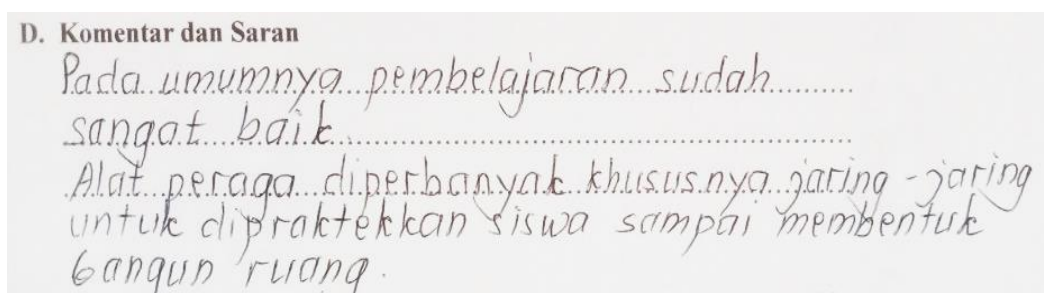 D. Komentar dan Saran
Pada umumnya pembelajaran sudah
sangat baik.
Alat peraga diperbanyak khususnya jaring-jaring
untuk dipraktekkan siswa sampai membentuk
bangun ruang.